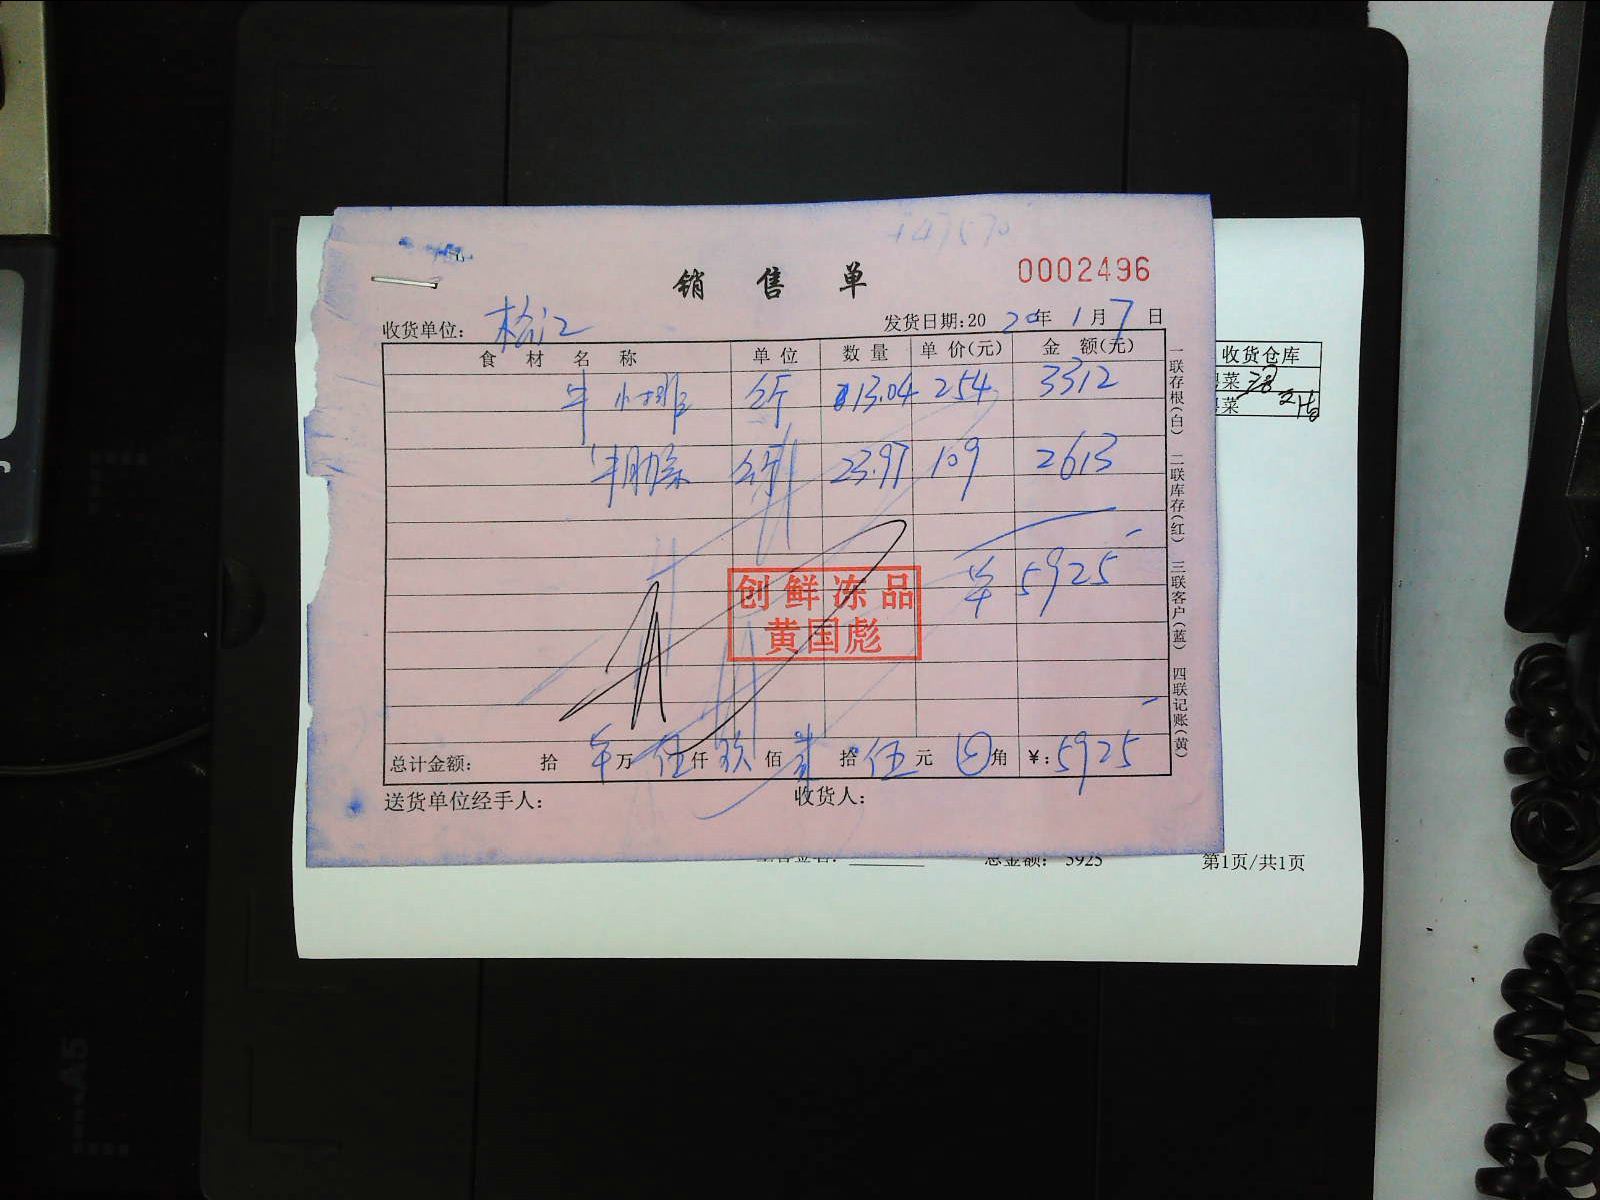 销售单
0002496
收货单位: 松江
发货日期:2020年1月7日
食材名称 单位 数量 单价(元) 金额(元)
牛小排 公斤 13.04 254 3312
牛肋条 公斤 23.97 109 2613
5925
创鲜冻品
黄国彪
总计金额: 拾 万 伍仟 玖佰 贰拾 伍元 角 ¥:5925
送货单位经手人: 收货人:
一联存根(白) 二联库存(红) 三联客户(蓝) 四联记账(黄)
收货仓库
菜
菜
总金额: 5925
第1页/共1页